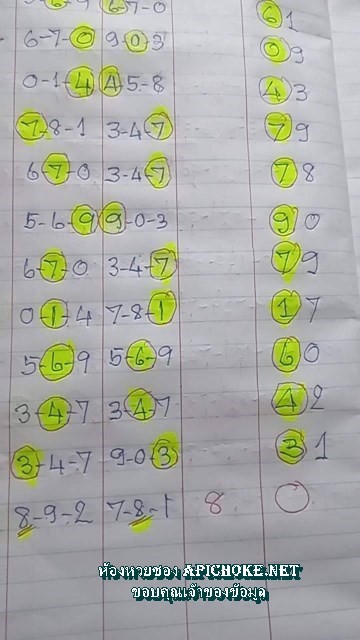 6-7-0 9-0-3 09
0-1-4 4-5-8 43
7-8-1 3-4-7 79
6-7-0 3-4-7 78
5-6-9 9-0-3 90
6-7-0 3-4-7 79
0-1-4 7-8-1 17
5-6-9 5-6-9 60
3-4-7 3-4-7 42
3-4-7 9-0-3 31
8-9-2 7-8-1 8
ห้องหวยซอง APICHOKE.NET
ขอบคุณเจ้าของข้อมูล